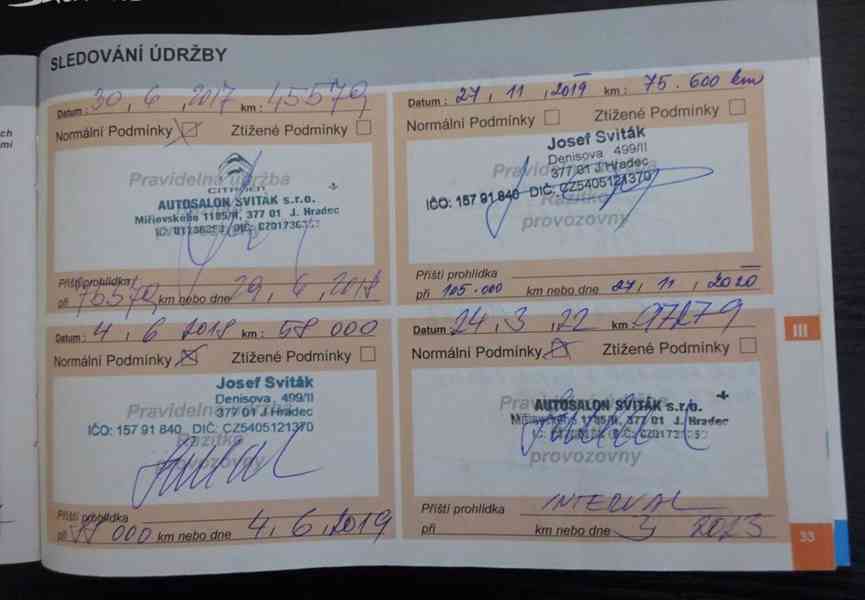 SLEDOVÁNÍ ÚDRŽBY
Datum: 30, 6, 2017 km: 45579
Normální Podmínky Ztížené Podmínky
Pravidelná údržba
CITROËN
AUTOSALON SVITÁK s.r.o.
377 01 J. Hradec
Příští prohlídka
při 76579 km nebo dne 29, 6, 2018
Datum: 27, 11, 2019 km: 75.600 km
Normální Podmínky Ztížené Podmínky
Josef Sviták
Denisova 499/II
377 01 J.Hradec
IČO: 157 91 840 DIČ: CZ5405121370
Razítko
provozovny
Příští prohlídka
při 105.000 km nebo dne 27, 11, 2020
Datum: 4, 6 2018 km: 58 000
Normální Podmínky Ztížené Podmínky
Josef Sviták
Denisova, 499/II
Pravidelná údržba
377 01 J.Hradec
IČO: 157 91 840 DIČ: CZ5405121370
Razítko
provozovny
Příští prohlídka
při 000 km nebo dne 4, 6, 2019
Datum: 24, 3, 22 km: 97279
Normální Podmínky Ztížené Podmínky
AUTOSALON SVITÁK s.r.o.
377 01 J. Hradec
provozovny
Příští prohlídka INTERVAL
při km nebo dne 3 2023
III
33